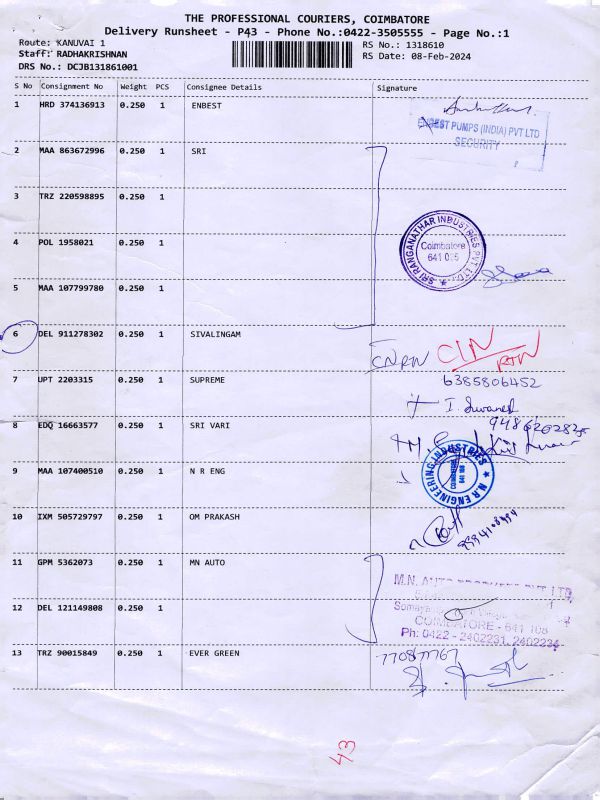 THE PROFESSIONAL COURIERS, COIMBATORE
Delivery Runsheet - P43 - Phone No.:0422-3505555 - Page No.:1
Route: KANUVAI 1
RS No.: 1318610
Staff: RADHAKRISHNAN
RS Date: 08-Feb-2024
DRS No.: DCJB131861001
S No Consignment No Weight PCS Consignee Details Signature
1 HRD 374136913 0.250 1 ENBEST
ENBEST PUMPS (INDIA) PVT LTD
SECURITY
2 MAA 863672996 0.250 1 SRI
3 TRZ 220598895 0.250 1
SRI RANGANATHAR INDUSTRIES PVT LTD.,
Coimbatore
4 POL 1958021 0.250 1
5 MAA 107799780 0.250 1
6 DEL 911278302 0.250 1 SIVALINGAM
CNRN CIN
RTN
7 UPT 2203315 0.250 1 SUPREME
6385806452
8 EDQ 16663577 0.250 1 SRI VARI
9 MAA 107400510 0.250 1 N R ENG
N.R ENGINEERING INDUSTRIES
COIMBATORE
641 108
10 IXM 505729797 0.250 1 OM PRAKASH
11 GPM 5362073 0.250 1 MN AUTO
M.N. AUTO PVT LTD
12 DEL 121149808 0.250 1
COIMBATORE - 641 108
Ph: 0422 - 2402231, 2402234
13 TRZ 90015849 0.250 1 EVER GREEN
43